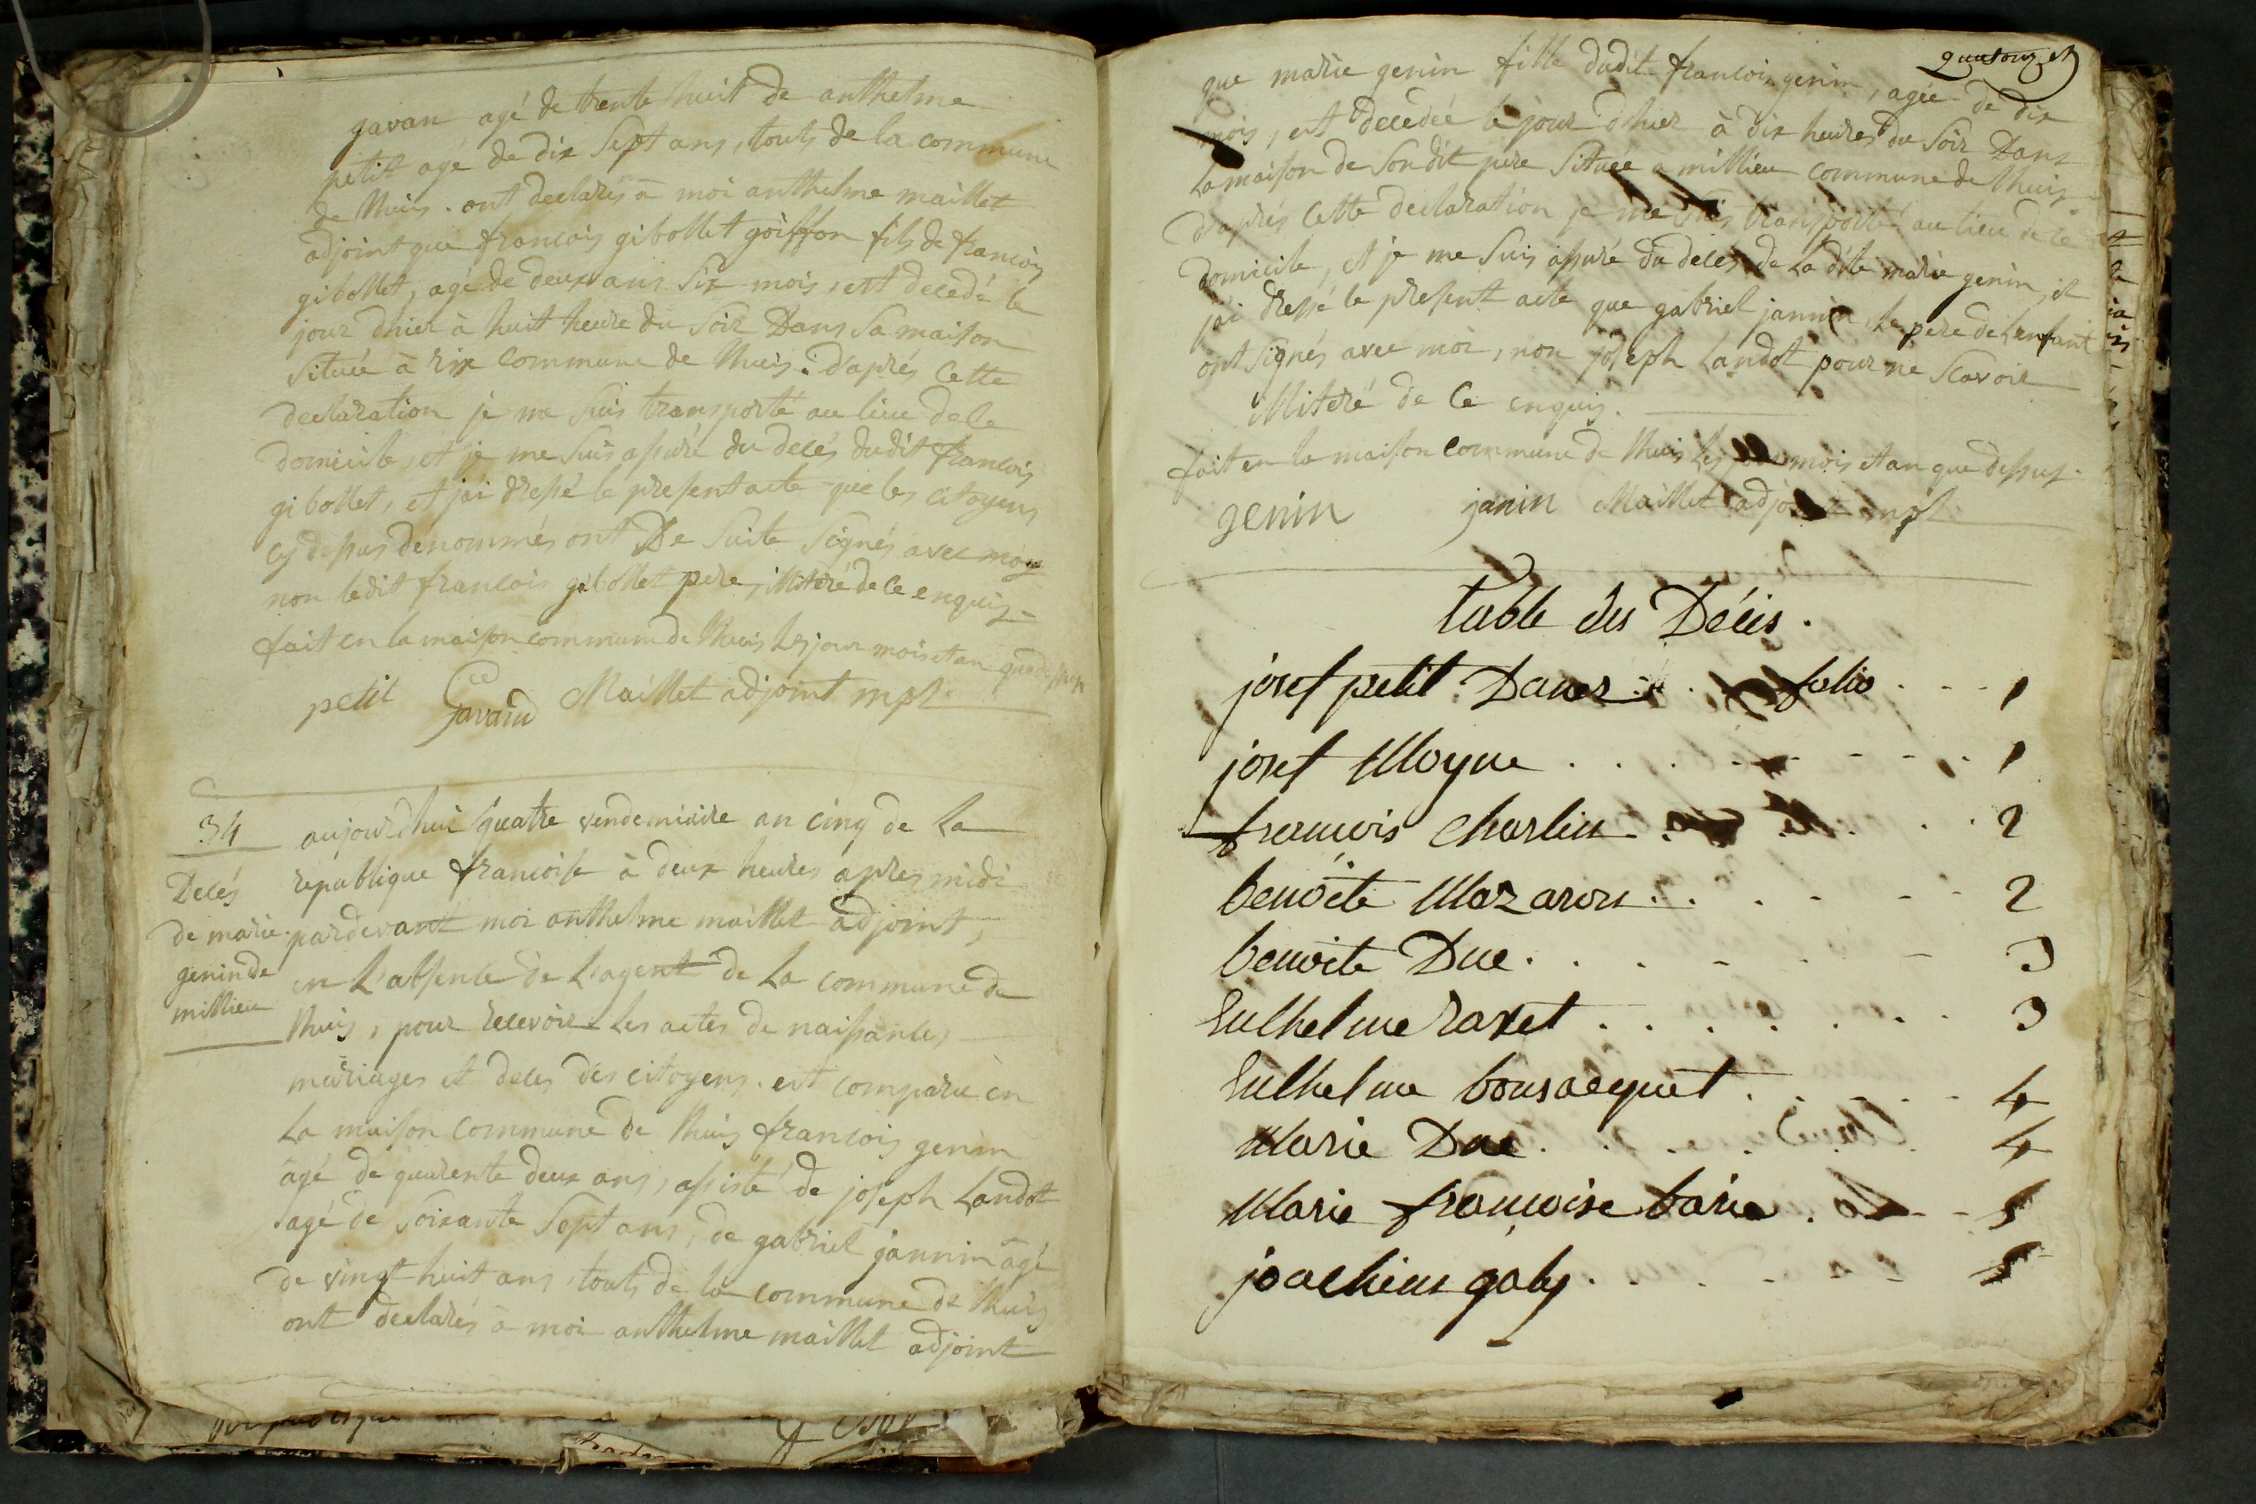 gavan agé de trente huit de anthelme
petit agé de dix Sept ans, touts de la commune
de thuis. ont declarés a moi anthelme maillet
adjoint que francois gibollet goiffon fils de francois
gibollet, agé de deux ans Six mois, est decedé le
jour dhier à huit heure du Soir Dans Sa maison
Située à rix Commune de thuis: d'aprés Cette
declaration je me Suis transporté au lieu de le
domicile, et je me Suis assuré du decés dudit francois
gibollet, et jai dressé le present acte que les citoyens
Cy dessus denommés ont De Suite Signés avec moy
non ledit francois gibollet pere, illiteré de Ce enquis
fait en la maison commune de thuis Les jour mois et an que dessus
petit Gavand Maillet adjoint mpl
34
Decés
de marie
genin de
millieu
aujourdhui quatre vendemiaire an cinq de La
republique francoise à deux heures apres midi
pardevant moi anthelme maillet adjoint,
en L'absence de L'agent de La commune de
thuis, pour recevoir Les actes de naissance,
mariages et deces des citoyens. est comparu en
La maison Commune de thuis francois genin
agé de quarente deux ans, assisté de joseph Landot
agé de soixante Sept ans, de gabriel jannin agé
de vingt huit ans, touts de la commune de thuis
ont declarés a moi anthelme maillet adjoint
que marie genin fille dudit francois genin, agée de dix
mois, est decedée le jour dhier à dix heures du Soir Dans
La maison de Son dit pere Située a millieu Commune de thuis
d'aprés Cette declaration je me Suis transporté au lieu de le
domicile, et je me Suis assuré du deces de La dite marie genin, et
jai dressé le present acte que gabriel jannin, Le pere de L'enfant
ont Signés avec moi, non joseph Landot pour ne Scavoir
illiteré de Ce enquis.
fait en la maison commune de thuis Les jour mois et an que dessus.
genin janin Maillet adjoint mpl
Table des Décis.
josef petit Daner folio 1
josef Moyne 1
francois Charlin 2
benoite Mazaron 2
benoite Duc 3
Enthelme ravet 3
Enthelme bonsacquet 4
Marie Duc 4
Marie francoise barie 5
joachim galy 5